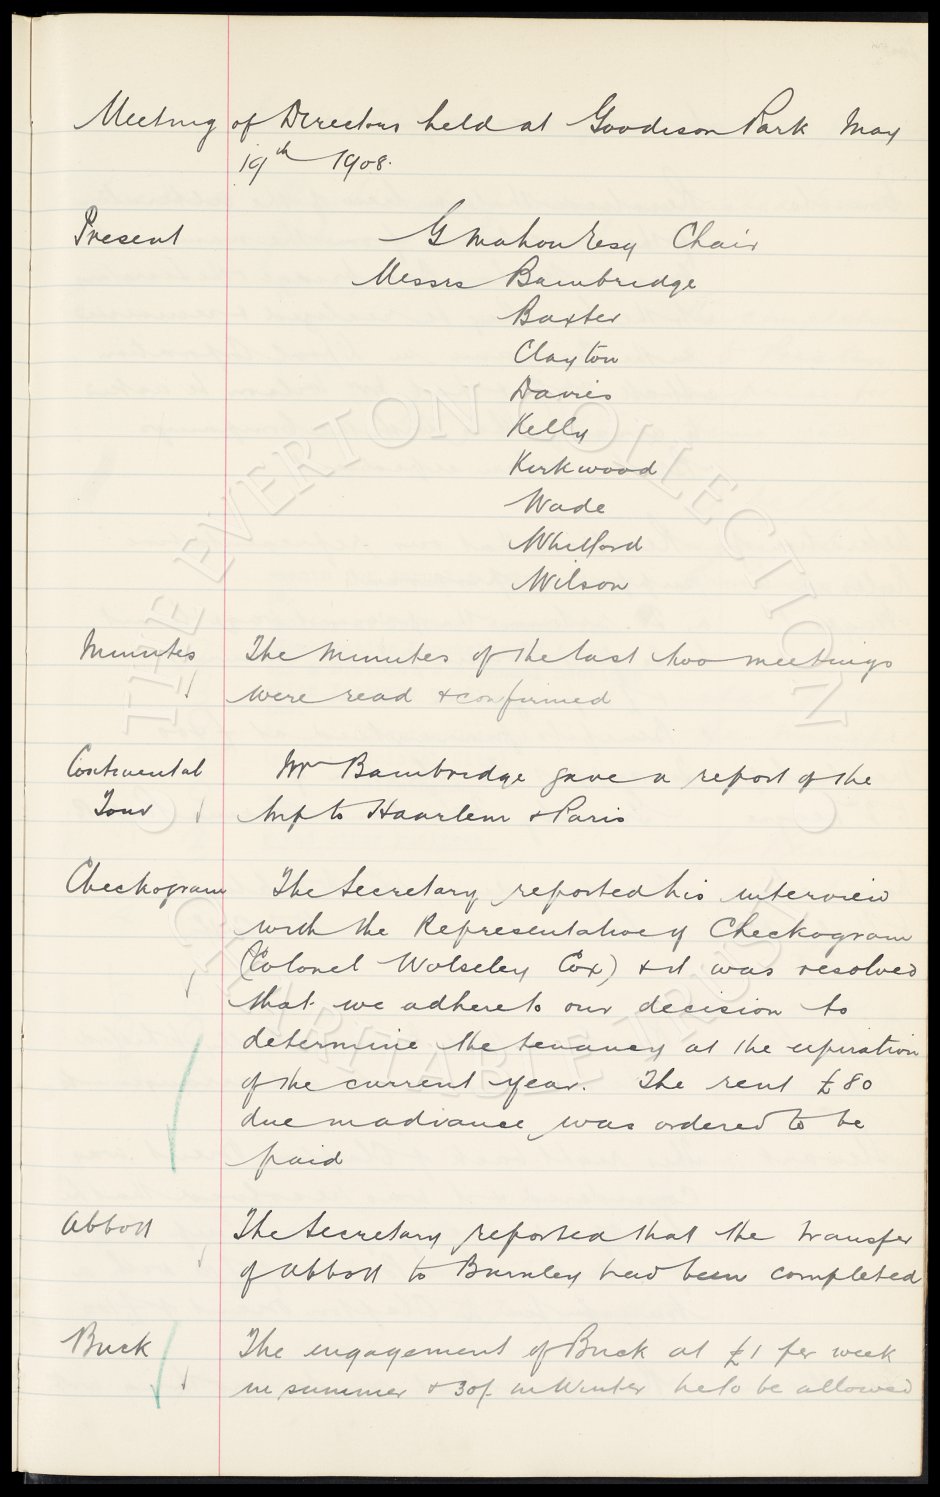 Meeting of Directors held at Goodison Park May
19th 1908.
Present
G Mahon Esq Chair
Messrs Bainbridge
Baxter
Clayton
Davies
Kelly
Kirkwood
Wade
Whitford
Wilson
Minutes The Minutes of the last two meetings
were read & confirmed
Continental Mr Bainbridge gave a report of the
Tour trip to Haarlem & Paris
Checkogram The Secretary reported his interview
with the Representative of Checkogram
(Colonel Wolseley Cox) & it was resolved
that we adhere to our decision to
determine the tenancy at the expiration
of the current year. The rent £80
due in advance was ordered to be
paid
Abbott The Secretary reported that the transfer
of Abbott to Burnley had been completed
Buck The engagement of Buck at £1 per week
in summer & 30/- in Winter he to be allowed
THE EVERTON COLLECTION
CHARITABLE TRUST